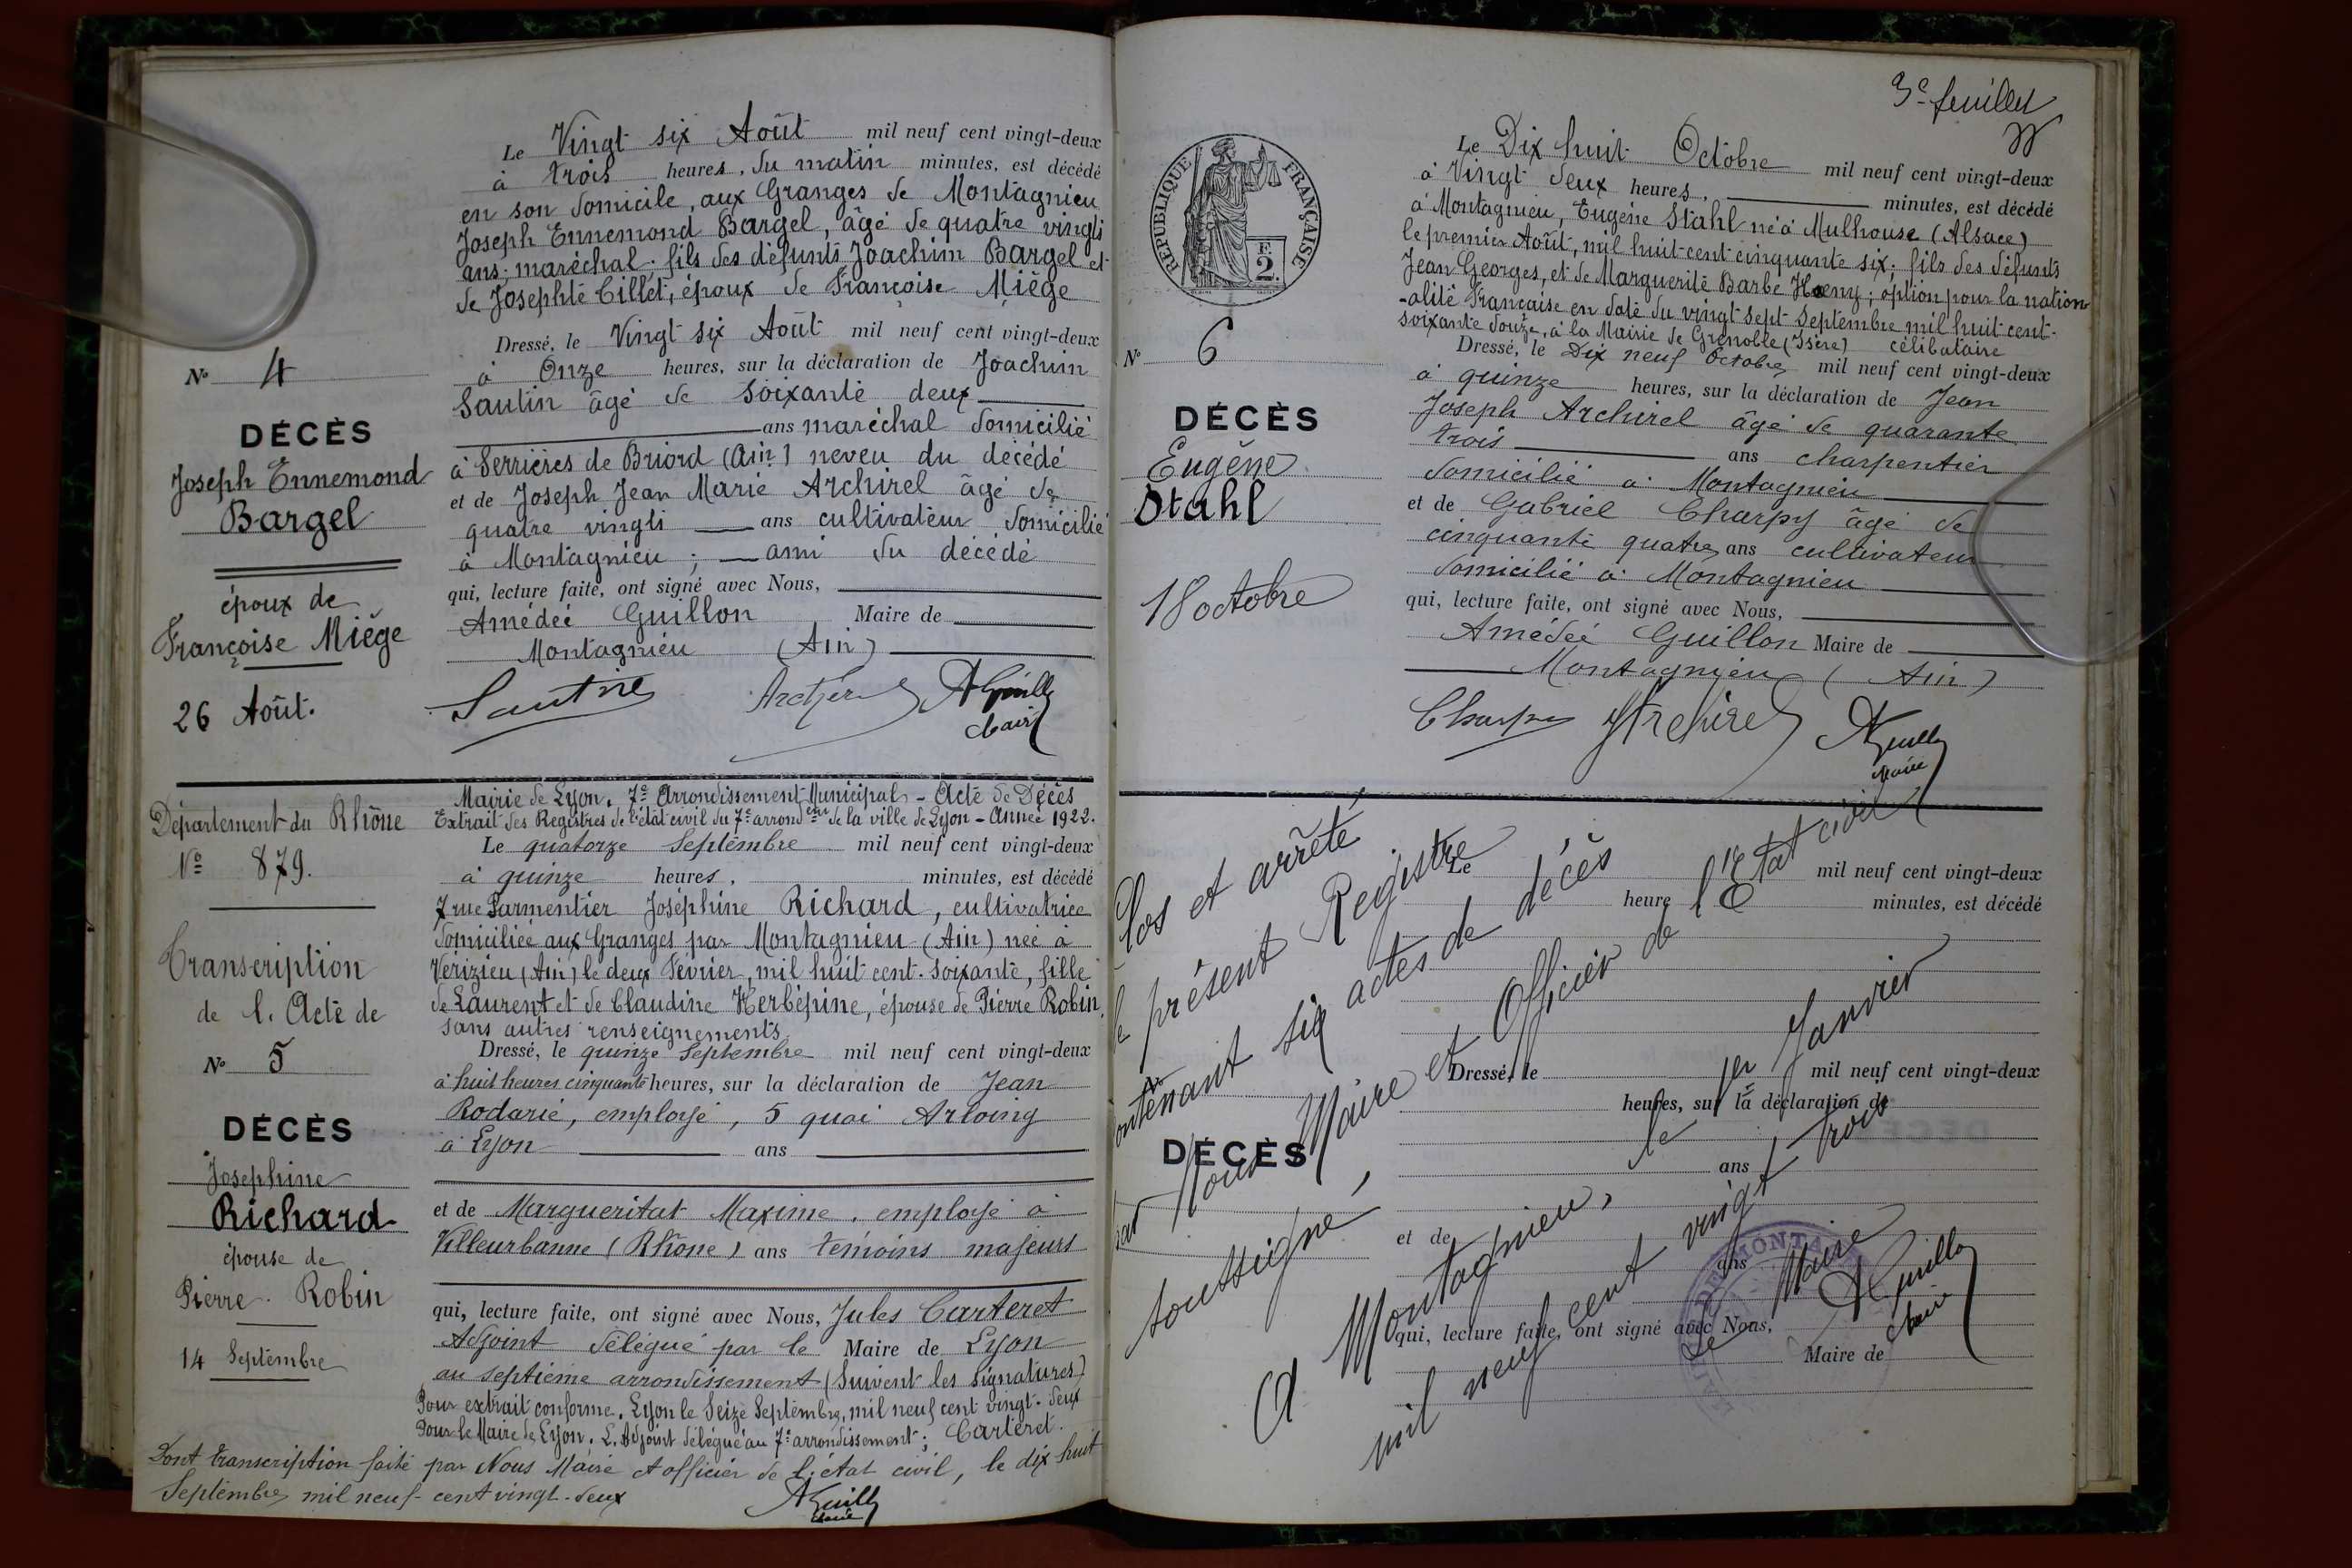 Le Vingt six Août mil neuf cent vingt-deux
à trois heures, du matin minutes, est décédé
en son domicile, aux Granges de Montagnieu
Joseph Ennemond Bargel, âgé de quatre vingti
ans. maréchal. fils des défunts Joachim Bargel et
de Josephte Billet, époux de Françoise Miège
Dressé, le Vingt six Août mil neuf cent vingt-deux
à Onze heures, sur la déclaration de Joachim
Sautin âgé de soixante deux
ans maréchal domicilié
à Serrières de Briord (Ain) neveu du décédé
et de Joseph Jean Marie Archirel âgé de
quatre vingti ans cultivateur domicilié
à Montagnieu ; ami du décédé
qui, lecture faite, ont signé avec Nous,
Amédée Guillon Maire de
Montagnieu (Ain)
N° 4
DÉCÈS
Joseph Ennemond
Bargel
époux de
Françoise Miège
26 Août.
Département du Rhône
N° 879.
Transcription
de l. Acte de
N° 5
DÉCÈS
Josephine
Richard
épouse de
Pierre Robin
14 Septembre
Mairie de Lyon. 7e Arrondissement Municipal - Acte de Décès
Extrait des Registres de l'état civil du 7e arrondent de la ville de Lyon - Année 1922.
Le quatorze Septembre mil neuf cent vingt-deux
à quinze heures, minutes, est décédé
7 rue Parmentier Joséphine Richard, cultivatrice
domiciliée aux Granges par Montagnieu (Ain) née à
Vérizieu (Ain) le deux Février, mil huit cent. soixante, fille
de Laurent et de Claudine Herbépine, épouse de Pierre Robin,
sans autres renseignements
Dressé, le quinze Septembre mil neuf cent vingt-deux
à huit heures cinquante heures, sur la déclaration de Jean
Rodarie, employé, 5 quai Arloing
à Lyon ans
et de Margueritat Maxime, employé à
Villeurbanne (Rhône) ans témoins majeurs
qui, lecture faite, ont signé avec Nous, Jules Carteret
Adjoint délégué par le Maire de Lyon
au septième arrondissement (Suivent les signatures)
Pour extrait conforme. Lyon le Seize Septembre, mil neuf cent vingt-deux
Pour le Maire de Lyon. L. Adjoint délégué au 7e arrondissement; Carteret.
Dont transcription faite par Nous Maire et officier de l'état civil, le dix huit
Septembre mil neuf-cent vingt-deux
3e feuillet
RÉPUBLIQUE FRANÇAISE
F.
2.
N° 6
DÉCÈS
Eugène
Stahl
18 octobre
Le Dix huit Octobre mil neuf cent vingt-deux
à Vingt deux heures, minutes, est décédé
à Montagnieu, Eugène Stahl né à Mulhouse (Alsace)
le premier Août, mil huit-cent cinquante six; fils des défunts
Jean Georges, et de Marguerite Barbe Hoeny; option pour la nation
-alité Française en date du vingt sept Septembre mil huit cent-
soixante douze, à la Mairie de Grenoble (Isère) célibataire
Dressé, le Dix neuf Octobre mil neuf cent vingt-deux
à quinze heures, sur la déclaration de Jean
Joseph Archirel âgé de quarante
trois ans charpentier
domicilié à Montagnieu
et de Gabriel Charpy âgé de
cinquante quatre ans cultivateur
domicilié à Montagnieu
qui, lecture faite, ont signé avec Nous,
Amédée Guillon Maire de
Montagnieu (Ain)
Charpy Archirel AGuillon
Maire
Clos et arrêté
le présent Registre
contenant six actes de décès
par Nous Maire et Officier de l'Etat civil
soussigné,
A Montagnieu, le 1er Janvier
mil neuf cent vingt trois
Le Maire
AGuillon
Maire
Le mil neuf cent vingt-deux
heure minutes, est décédé
Dressé, le mil neuf cent vingt-deux
heures, sur la déclaration de
ans
N°
DÉCÈS
et de
ans
qui, lecture faite, ont signé avec Nous,
Maire de